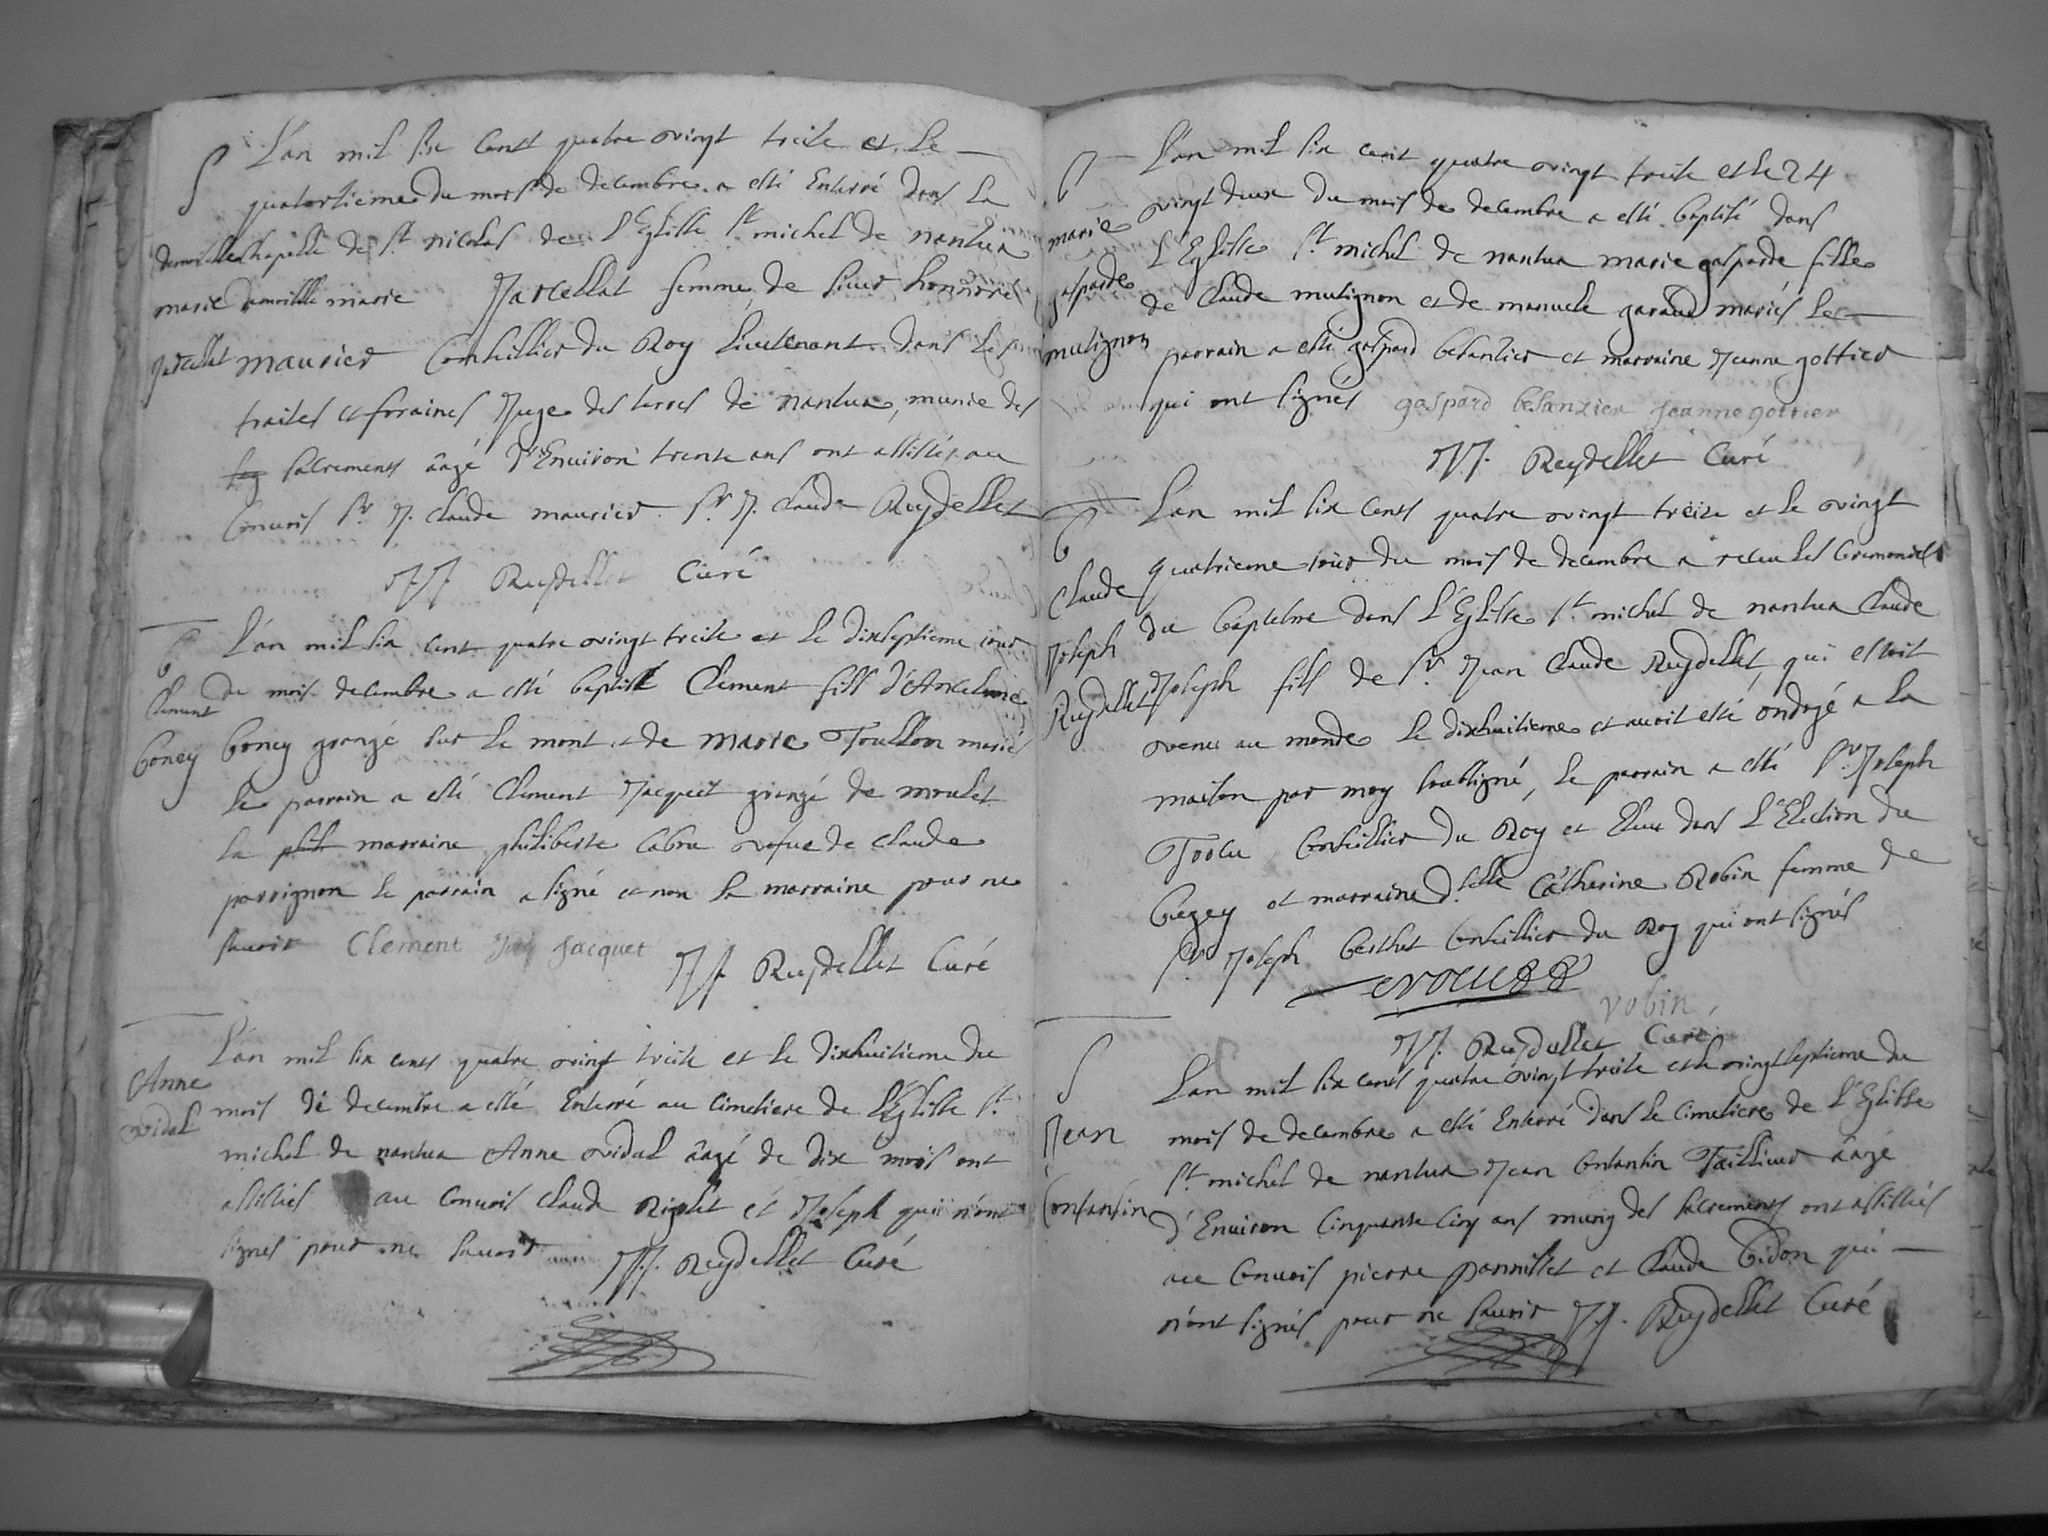 S L'an mil six cent quatre vingt treise et le
quatorsieme du mois de decembre a esté Enterré dans la
demoiselle chapelle de st nicolas de l'Eglisse st michel de nantua
marie damoiselle marie Jarcellat femme de sieur honnoré
Jarcellat maurier Conseillier du Roy Lieutenant dans les
traites et foraines Juge des terres de nantua, munie des
sacrements âagé d'Environ trente ans ont assistés au
Convois sr J. Claude maurier sr J. Claude Reydellet
JJ. Reydellet Curé
b L'an mil six cent quatre vingt treise et le dixseptieme jour
Clement du mois decembre a esté baptisé Clement fils d'Anthelme
boney boney grangé sur le mont et de marie Toullon mariés
le parrain a esté Clement Jacquet grangé de moulet
la marraine philiberte Cabru vefue de claude
parrignon le parrain a signé et non la marraine pour ne
sauoir Clement Jacquet JJ. Reydellet Curé
L'an mil six cents quatre vingt treise et le dixhuitieme du
Anne mois de decembre a esté Enterré au cimetiere de l'Eglisse st
vidal michel de nantua Anne vidal âagé de dix mois ont
assistés au Convois Claude et Joseph qui n'ont
signés pour ne sauoir JJ. Reydellet Curé
b L'an mil six cent quatre vingt treise et le 24
marie vingt deux du mois de decembre a esté baptisé dans
gasparde l'Eglisse st michel de nantua marie gasparde fille
mutignon de Claude mutignon et de manuele garaud mariés le
parrain a esté gaspard besansier et marraine Jeanne gottier
qui ont signés gaspard besanzier Jeanne gottier
JJ. Reydellet Curé
b L'an mil six cents quatre vingt treize et le vingt
Claude quatrieme jour du mois de decembre a receu les ceremonies
Joseph du baptesme dans l'Eglisse st michel de nantua Claude
Reydellet Joseph fils de sr Jean Claude Reydellet, qui estoit
venu au monde le dixhuitieme et auoit esté ondoyé a la
maison par moy soubsigné, le parrain a esté sr Joseph
Conseillier du Roy et Eleu dans l'Election du
bugey et marraine d.lle Catherine Robin femme de
sr Joseph berthet Conseillier du Roy qui ont signés
robin
JJ. Reydellet Curé
S L'an mil six cents quatre vingt treise et le vingtseptieme du
Jean mois de decembre a esté Enterré dans le Cimetiere de l'Eglisse
Constantin st michel de nantua Jean Constantin Taillieur âagé
d'Environ Cinquante Cinq ans muny des sacrements ont assistés
au Convois pierre pannisset et Claude bidon qui
n'ont signés pour ne sauoir JJ. Reydellet Curé